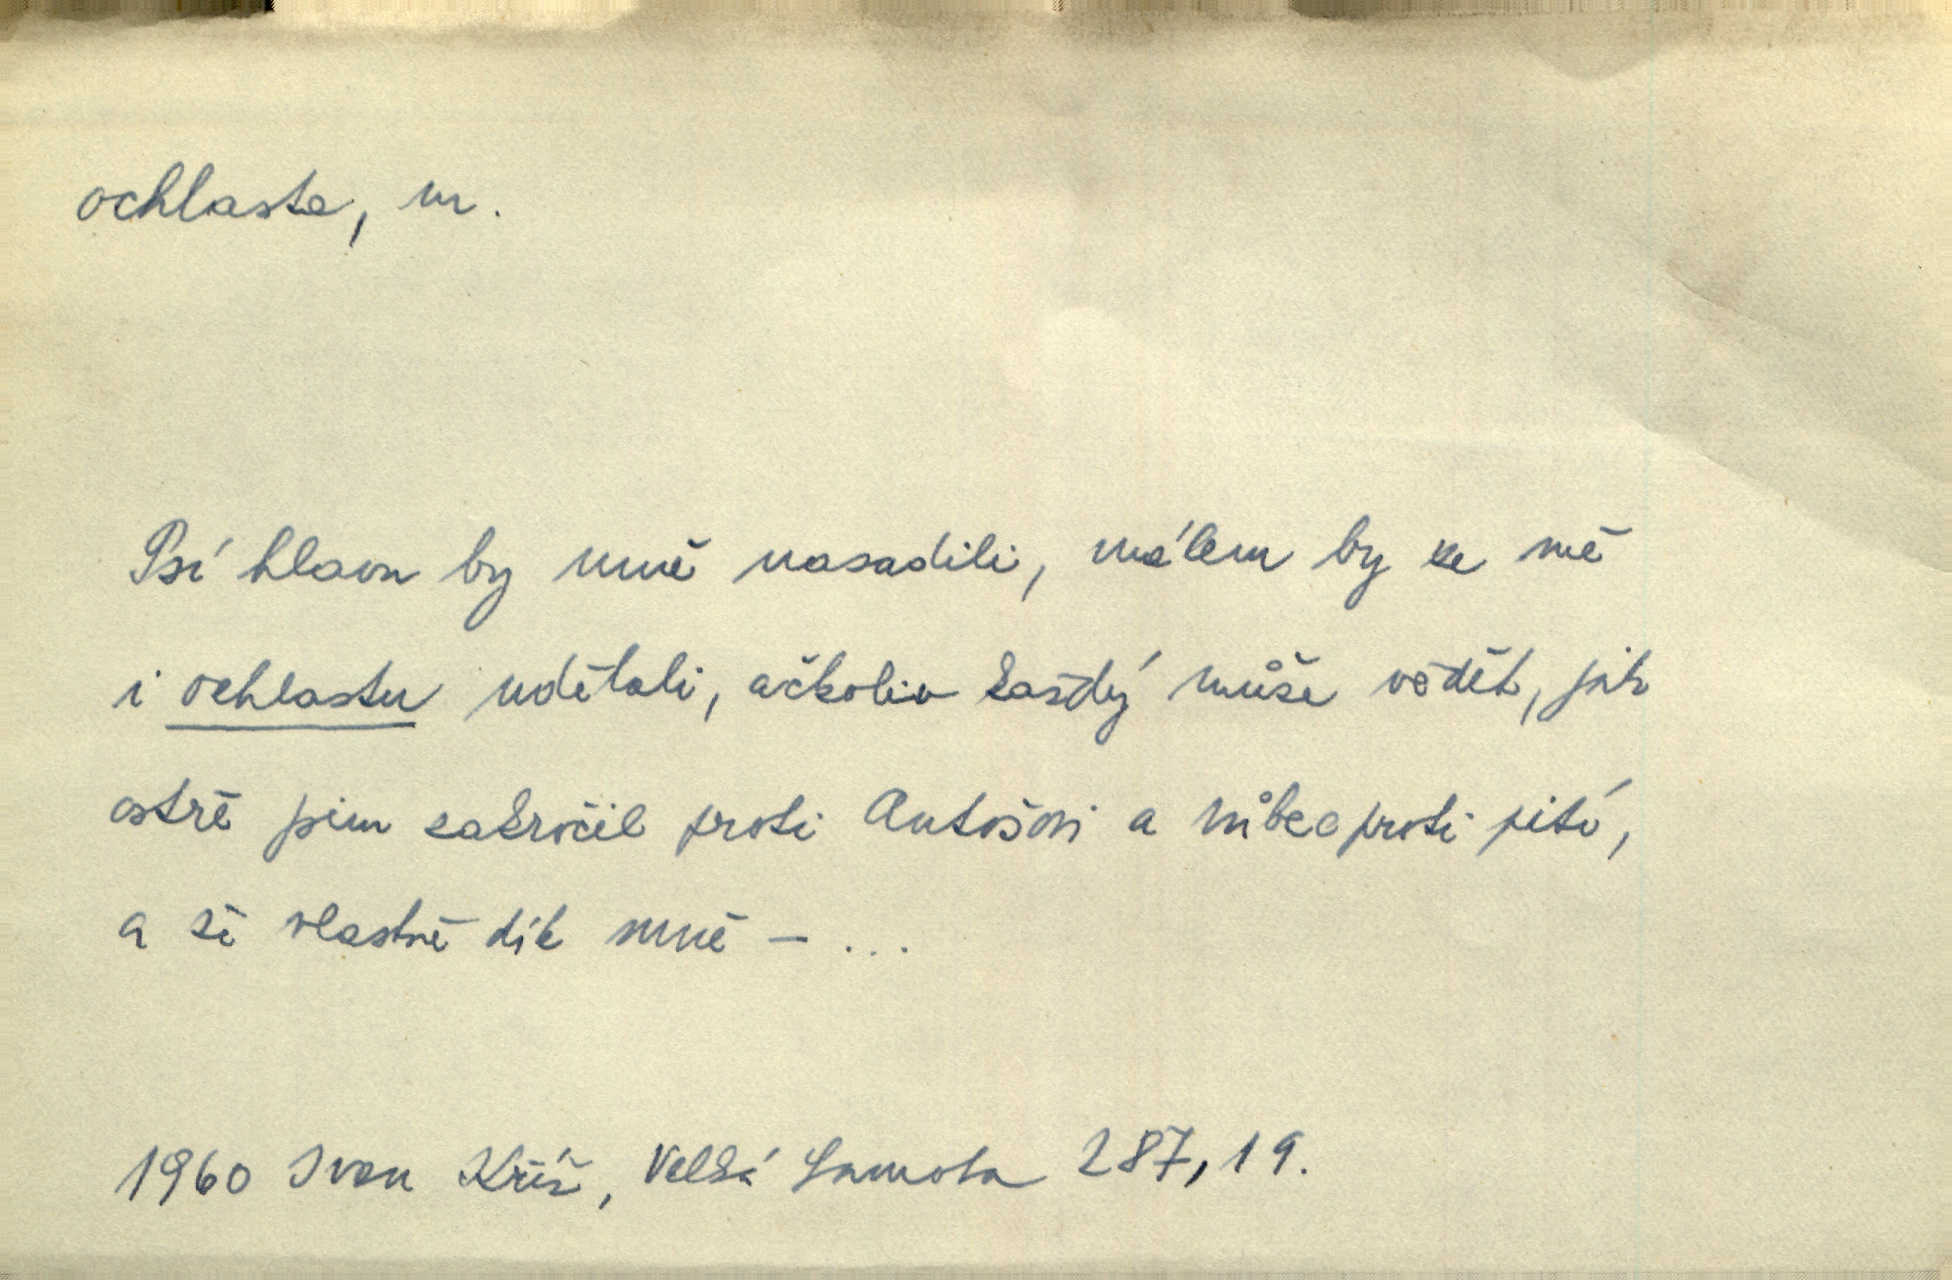 ochlasta, m.
Psí hlavu by mně nasadili, málem by ze mě
i ochlastu udělali, ačkoliv každý může vědět, jak
ostře jsem zakročil proti Antošovi a vůbec proti pití,
a že vlastně dík mně – ...
1960 Ivan Kříž, Velká Samota 287,19.